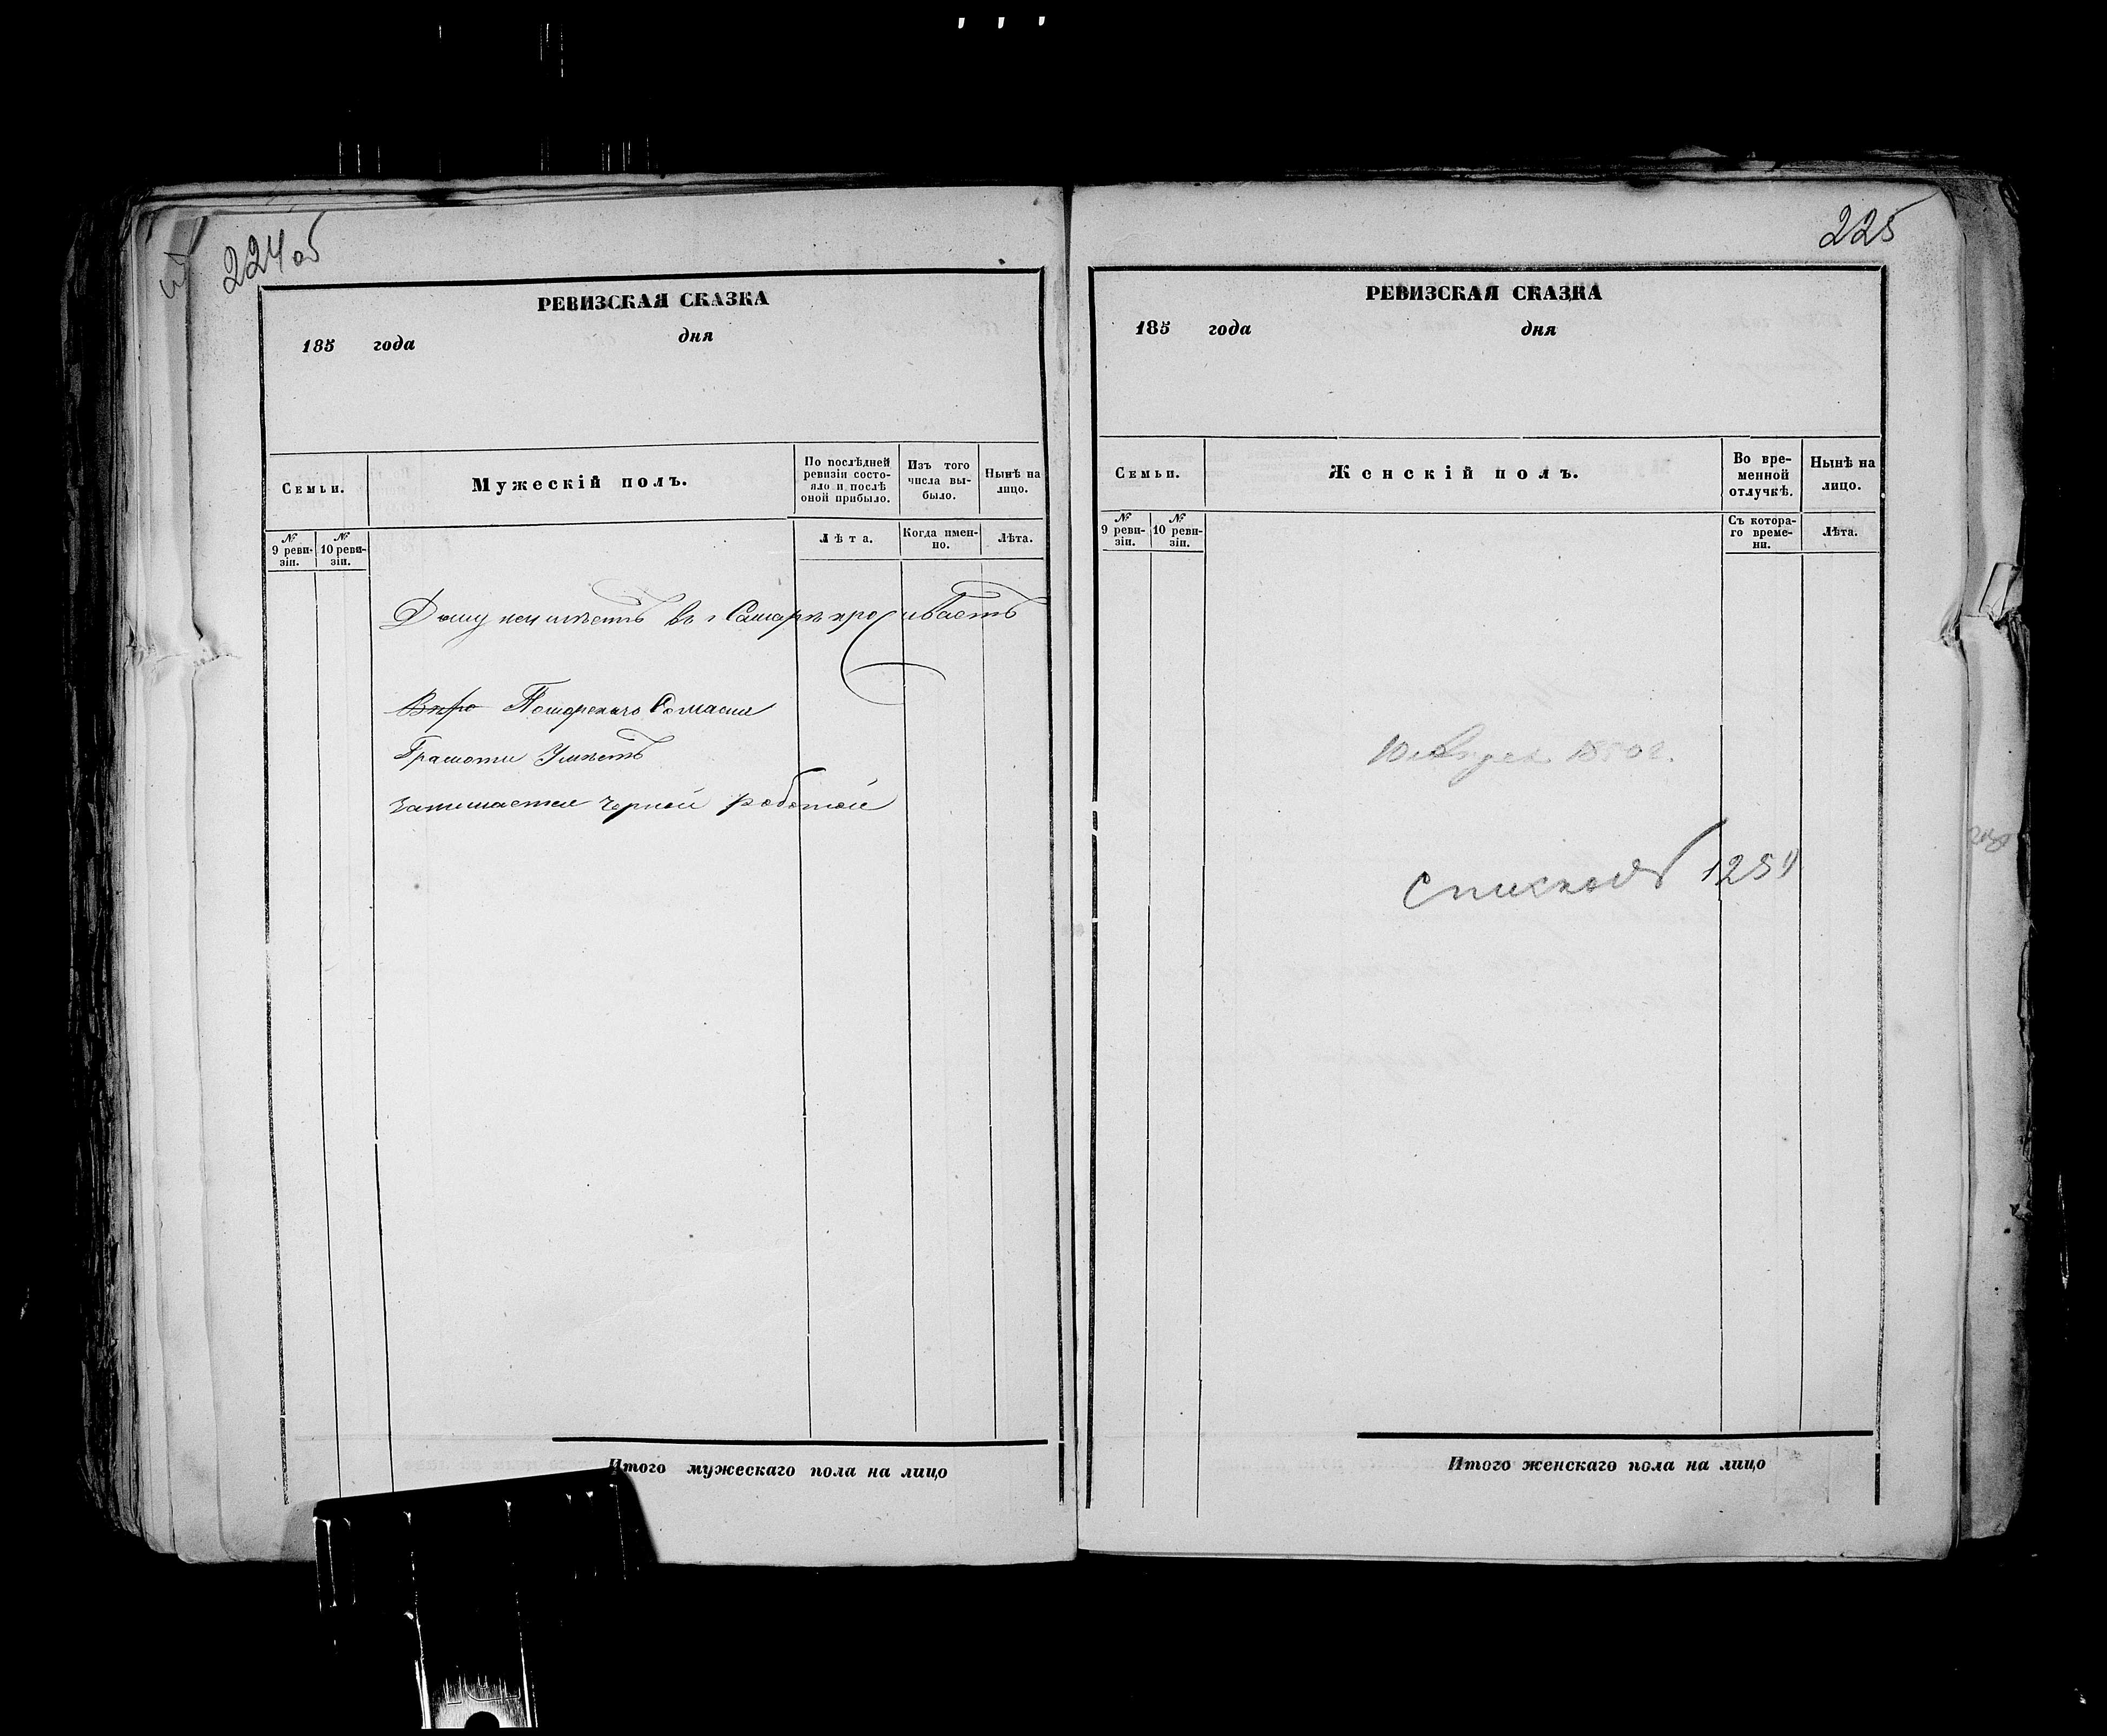 224об
РЕВИЗСКАЯ СКАЗКА
185 года дня
Семьи.
Мужескій полъ.
По послѣдней ревизіи состояло и послѣ оной прибыло.
Изъ того числа выбыло.
Нынѣ на лицо.
№ 9 ревизіи.
№ 10 ревизіи.
Лѣта.
Когда именно.
Лѣта.
Дому неимѣетъ въ г Самарѣ проживаетъ
Вѣро Поморскаго Согласия
Грамоти Умѣетъ
Занимается черной работой
Итого мужескаго пола на лицо
225
РЕВИЗСКАЯ СКАЗКА
185 года дня
Семьи.
Женскій полъ.
Во временной отлучкѣ.
Нынѣ на лицо.
№ 9 ревизіи.
№ 10 ревизіи.
Съ котораго времени.
Лѣта.
Итого женскаго пола на лицо